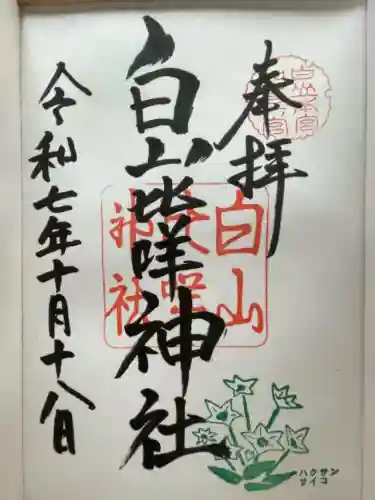 奉拝
白山比咩神社
令和七年十月十八日
白山
比咩
神社
ハクサン
サイコ